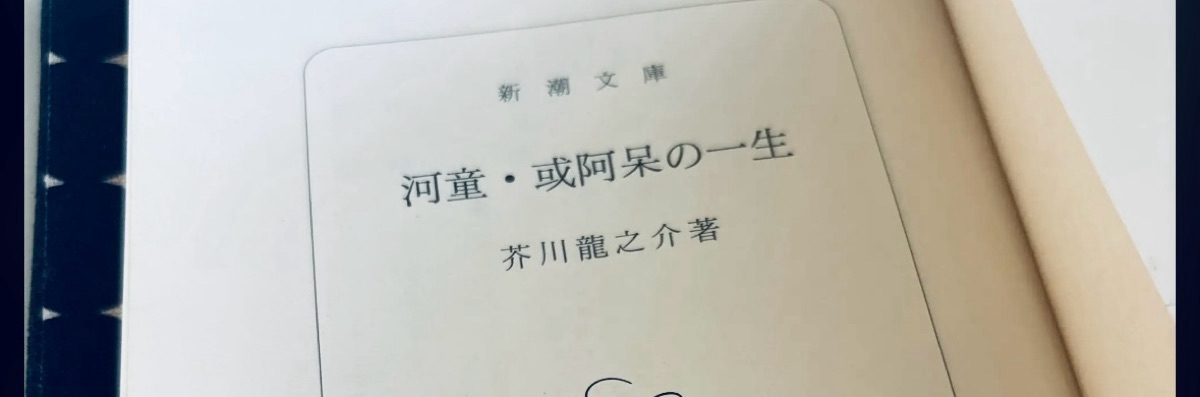 新潮文庫
河童・或阿呆の一生
芥川龍之介著